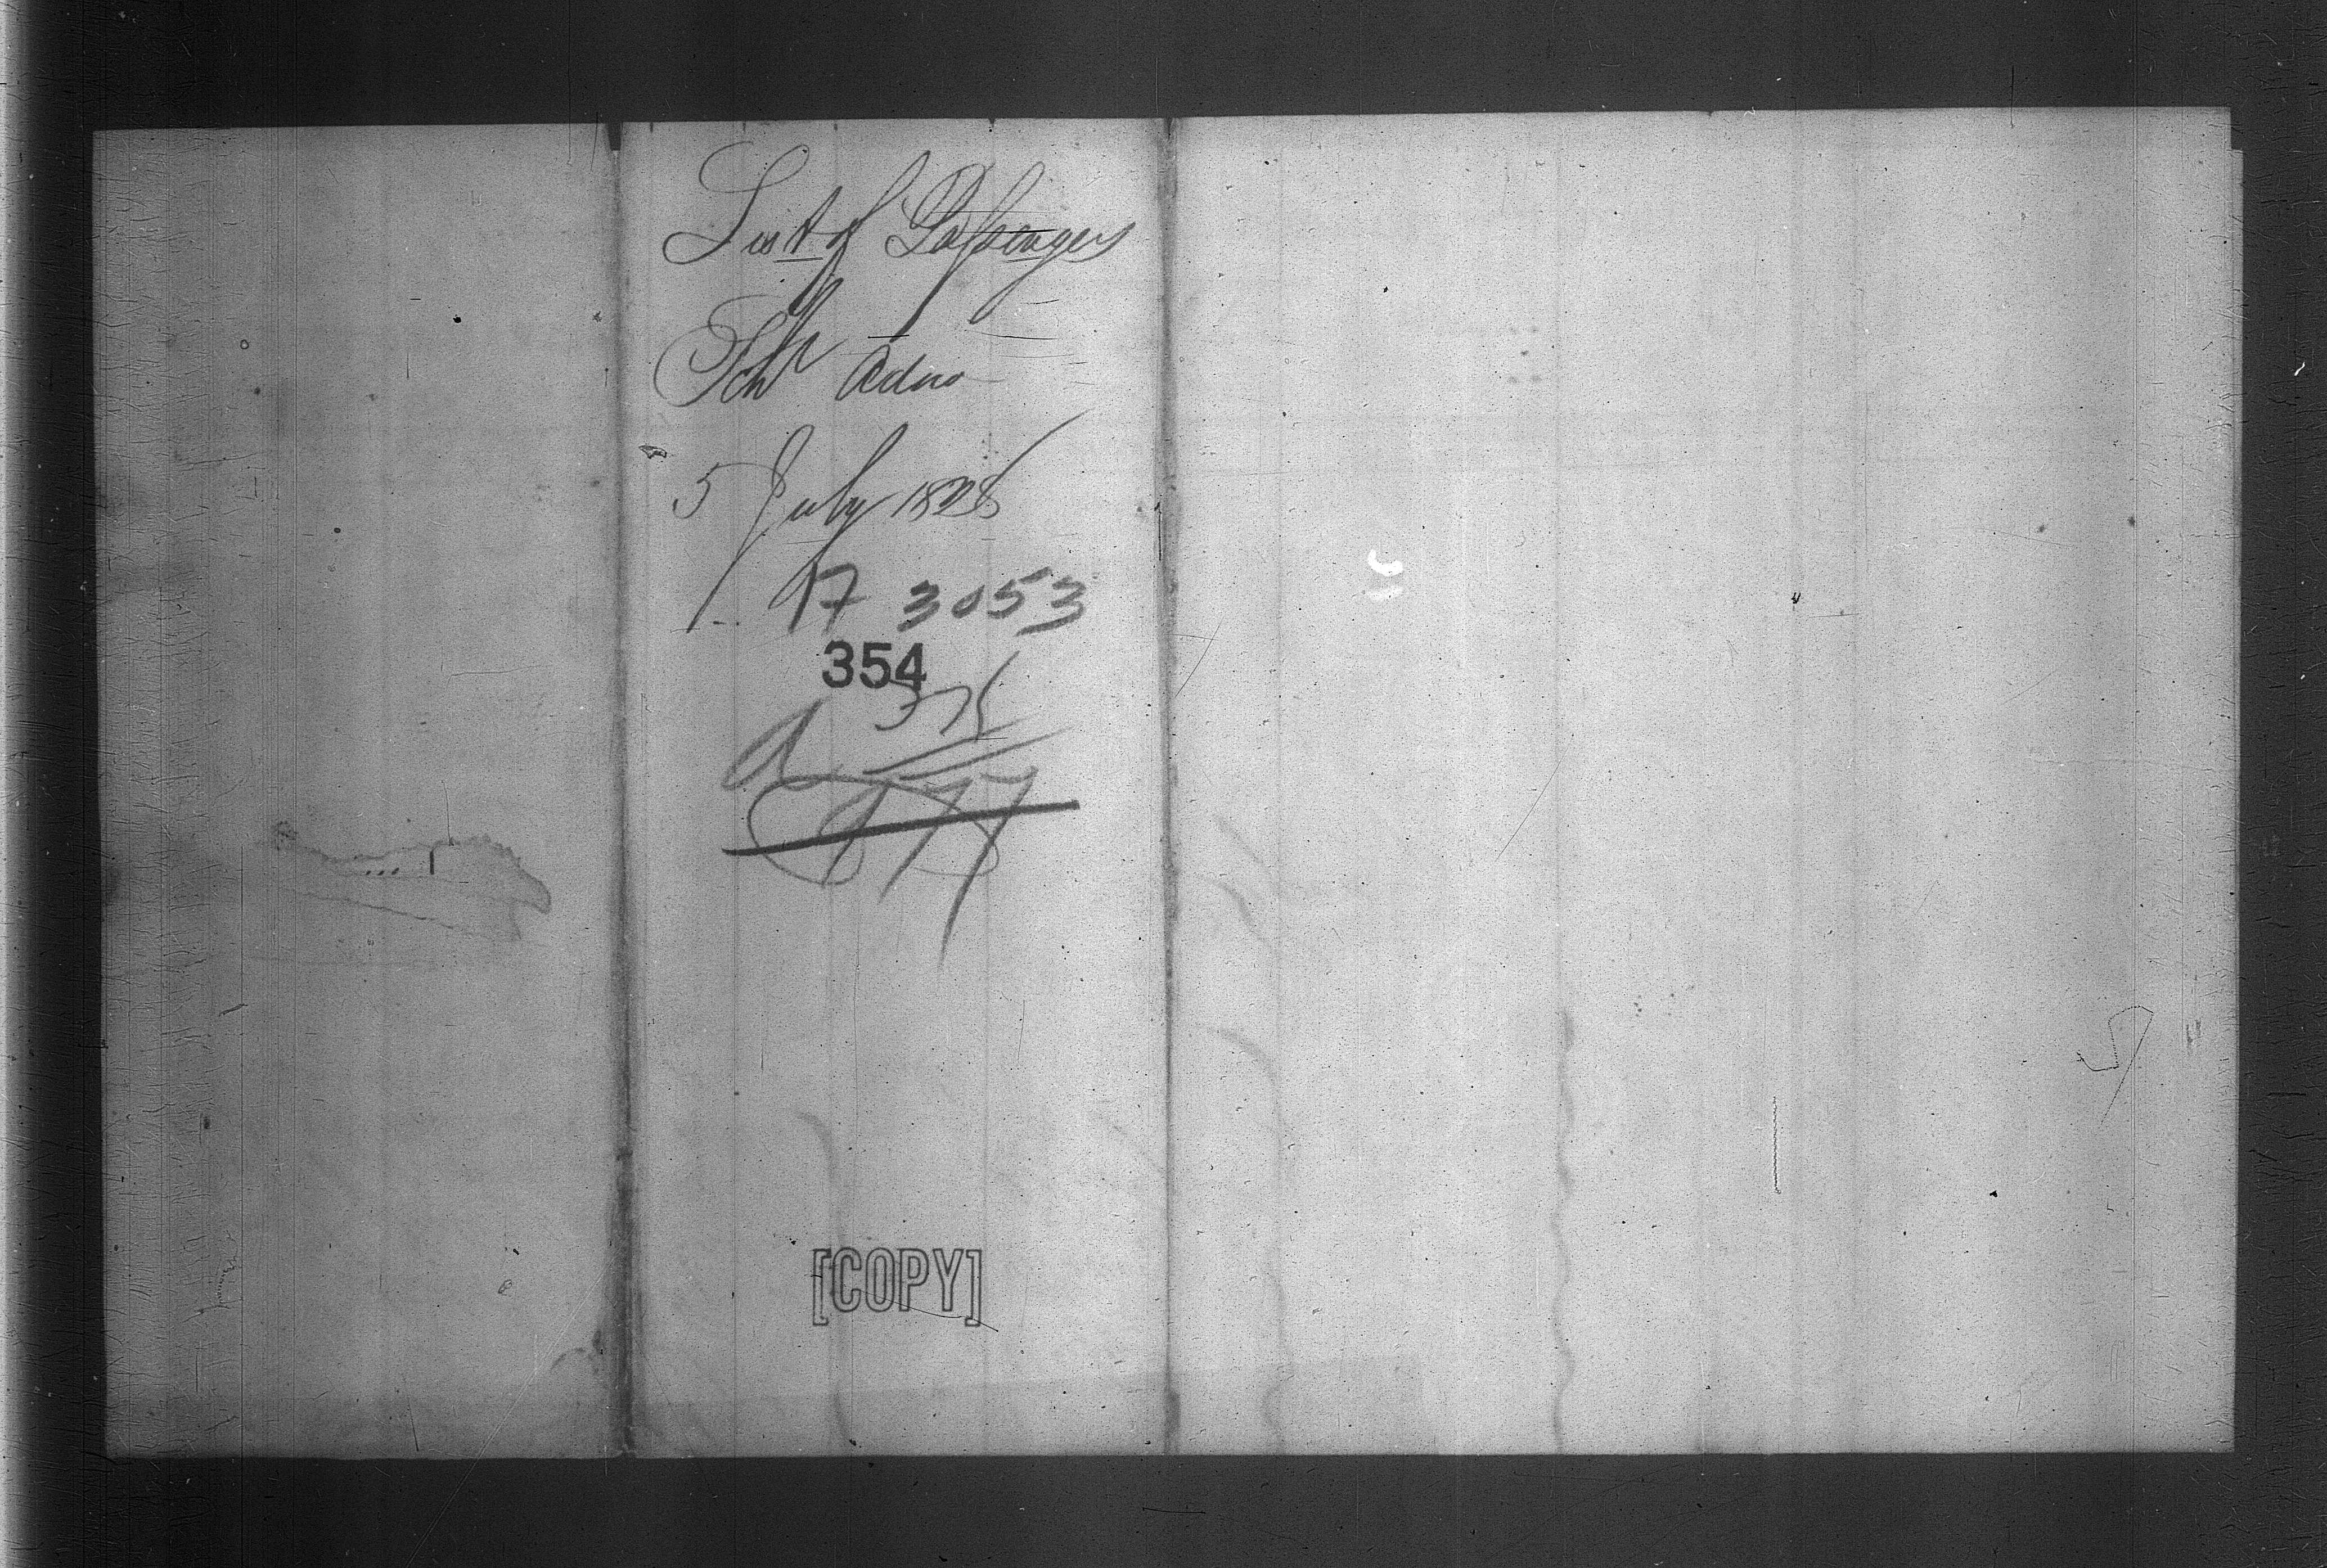 List of Passengers
Schr
5 July 1828
17 3053
354
375
[COPY]